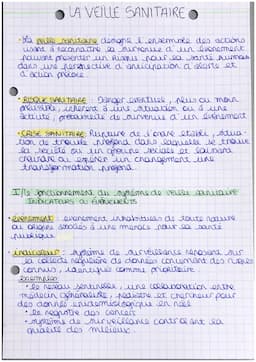 LA VEILLE SANITAIRE
• La veille sanitaire désigne l'ensemble des actions
visant à reconnaître la survenue d'un évènement
pouvant présenter un risque pour la santé humaine
dans une perspective d'anticipation d'alerte et
d'action précoce
• RISQUE SANITAIRE: Danger éventuel, plus ou moins
prévisible, inhérent à une situation ou à une
activité, probabilité de survenue d'un évènement
• CRISE SANITAIRE: Rupture de l'ordre établi, situa-
tion de trouble profond dans laquelle se trouve
la société ou un groupe social et laissant
craindre ou espérer un changement, une
transformation profond.
I/ le fonctionnement du système de veille sanitaire
INDICATEURS ou ÉVÉNEMENTS
• évènement: évènement inhabituels de toute nature
ou origine associés à une menace pour la santé
publique
• indicateur: système de surveillance reposant sur
la collecte régulière de données concernant des risques
connus, identifiés comme prioritaire
Exemples:
• le réseau sentinelle, une collaboration entre
médecin généraliste, pédiatre et chercheur pour
des données épidémiologique en réel
• le registre des cancers
• système de surveillance contrôlant la
qualité des milieux